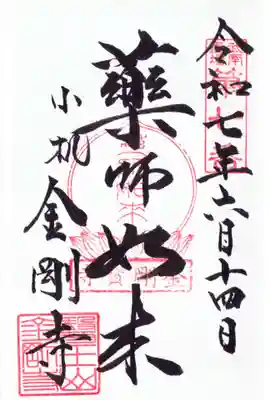 令和七年六月十四日
藥師如来
小机
金剛寺